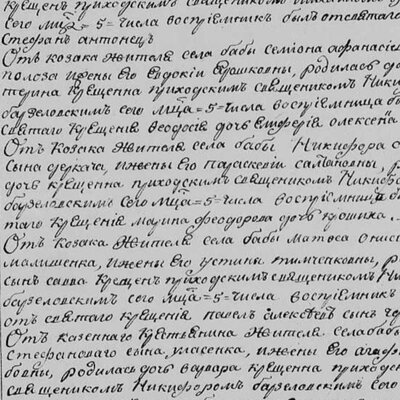 крещенъ приходскимъ священикомъ
сего мц҃а =5= числа воспріемникъ былъ отсвятаго
Стефанъ антонецъ
Отъ козака жителя села бабы семіона афанасіе
полоза ижены его евдокіи родилась до
терина крещенна приходскимъ священикомъ Ники
барзеловскимъ сего мц҃а =5= числа воспріемница бы
святаго крещенія феодосія дочь елиферія олексен
Отъ козака жителя села бабы Никифора с
Сына деркача, ижены его параскевіи р
дочь крещенна приходскимъ священикомъ Никифо
барзеловскимъ сего мц҃а =5= числа воспріемница б
таго крещенія марина феодорова дочь крошка
Отъ козака жителя села бабы матвея онис
малышенка, ижены его устины тимченковны, р
сынъ савва крещенъ приходскимъ священикомъ Никиф
барзеловскимъ сего мц҃а =5= числа воспріемникъ б
отъ святаго крещенія павелъ алексеевъ сынъ
Отъ казеннаго крестьянина жителя села баб
стефановаго сына, ижены его агаф
бовны, родилась дочь варвара крещенна приход
священикомъ Никифоромъ барзеловскимъ сего